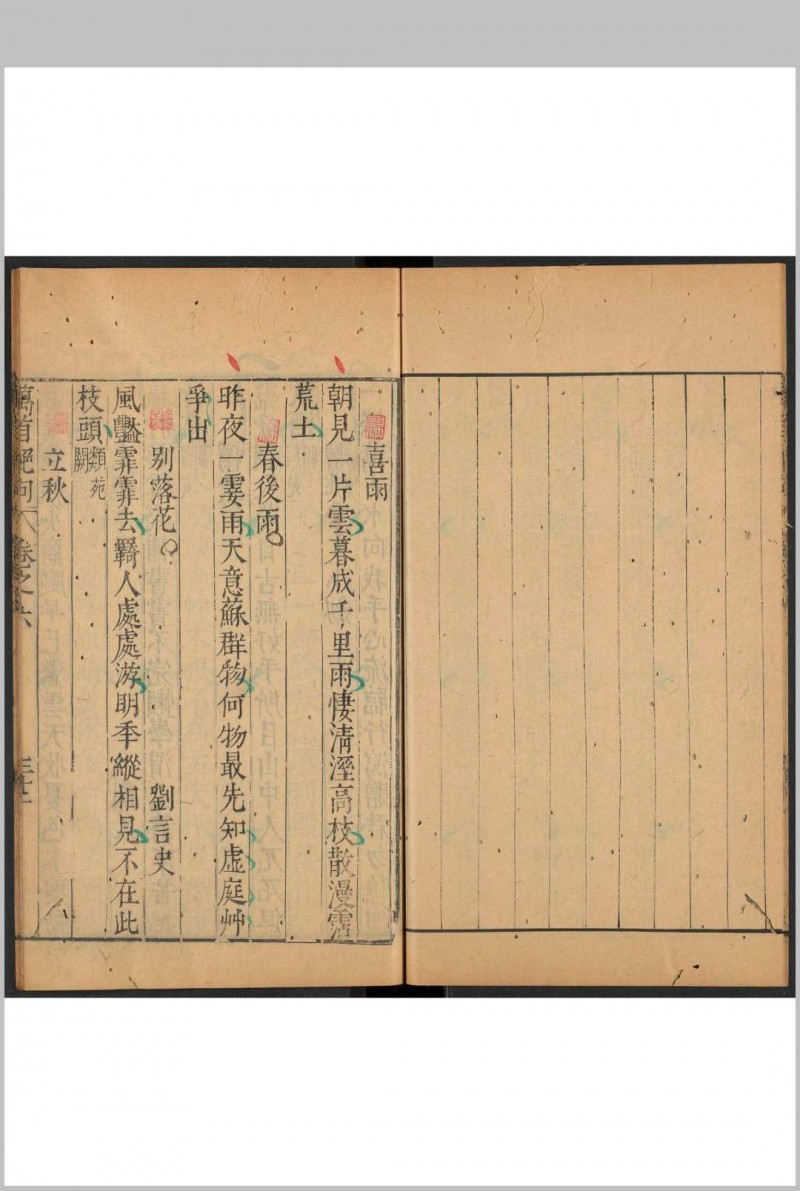 喜雨
朝見一片雲暮成千里雨悽清溼高枝散漫霑
荒土
春後雨
昨夜一霎雨天意蘇群物何物最先知虛庭艸
爭出
別落花 劉言史
風豔霏霏去羇人處處游明年縱相見不在此
枝頭 類苑闕
立秋
萬首絕句 卷之六